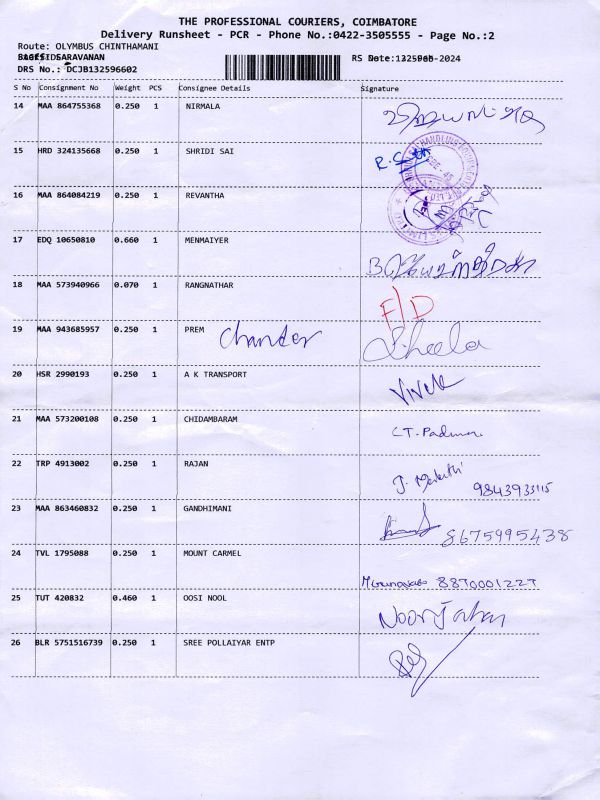 THE PROFESSIONAL COURIERS, COIMBATORE
Delivery Runsheet - PCR - Phone No.:0422-3505555 - Page No.:2
Route: OLYMBUS CHINTHAMANI
SARAVANAN RS Date: -2024
DRS No.: DCJB132596602
S No Consignment No Weight PCS Consignee Details Signature
14 MAA 864755368 0.250 1 NIRMALA
15 HRD 324135668 0.250 1 SHRIDI SAI
16 MAA 864084219 0.250 1 REVANTHA
17 EDQ 10650810 0.660 1 MENMAIYER
18 MAA 573940966 0.070 1 RANGNATHAR F/D
19 MAA 943685957 0.250 1 PREM Chander Sheela
20 HSR 2990193 0.250 1 A K TRANSPORT Vivek
21 MAA 573200108 0.250 1 CHIDAMBARAM CT. Padma
22 TRP 4913002 0.250 1 RAJAN J. Malathi
23 MAA 863460832 0.250 1 GANDHIMANI 8675995438
24 TVL 1795088 0.250 1 MOUNT CARMEL 8870001227
25 TUT 420832 0.460 1 OOSI NOOL Noorjahan
26 BLR 5751516739 0.250 1 SREE POLLAIYAR ENTP